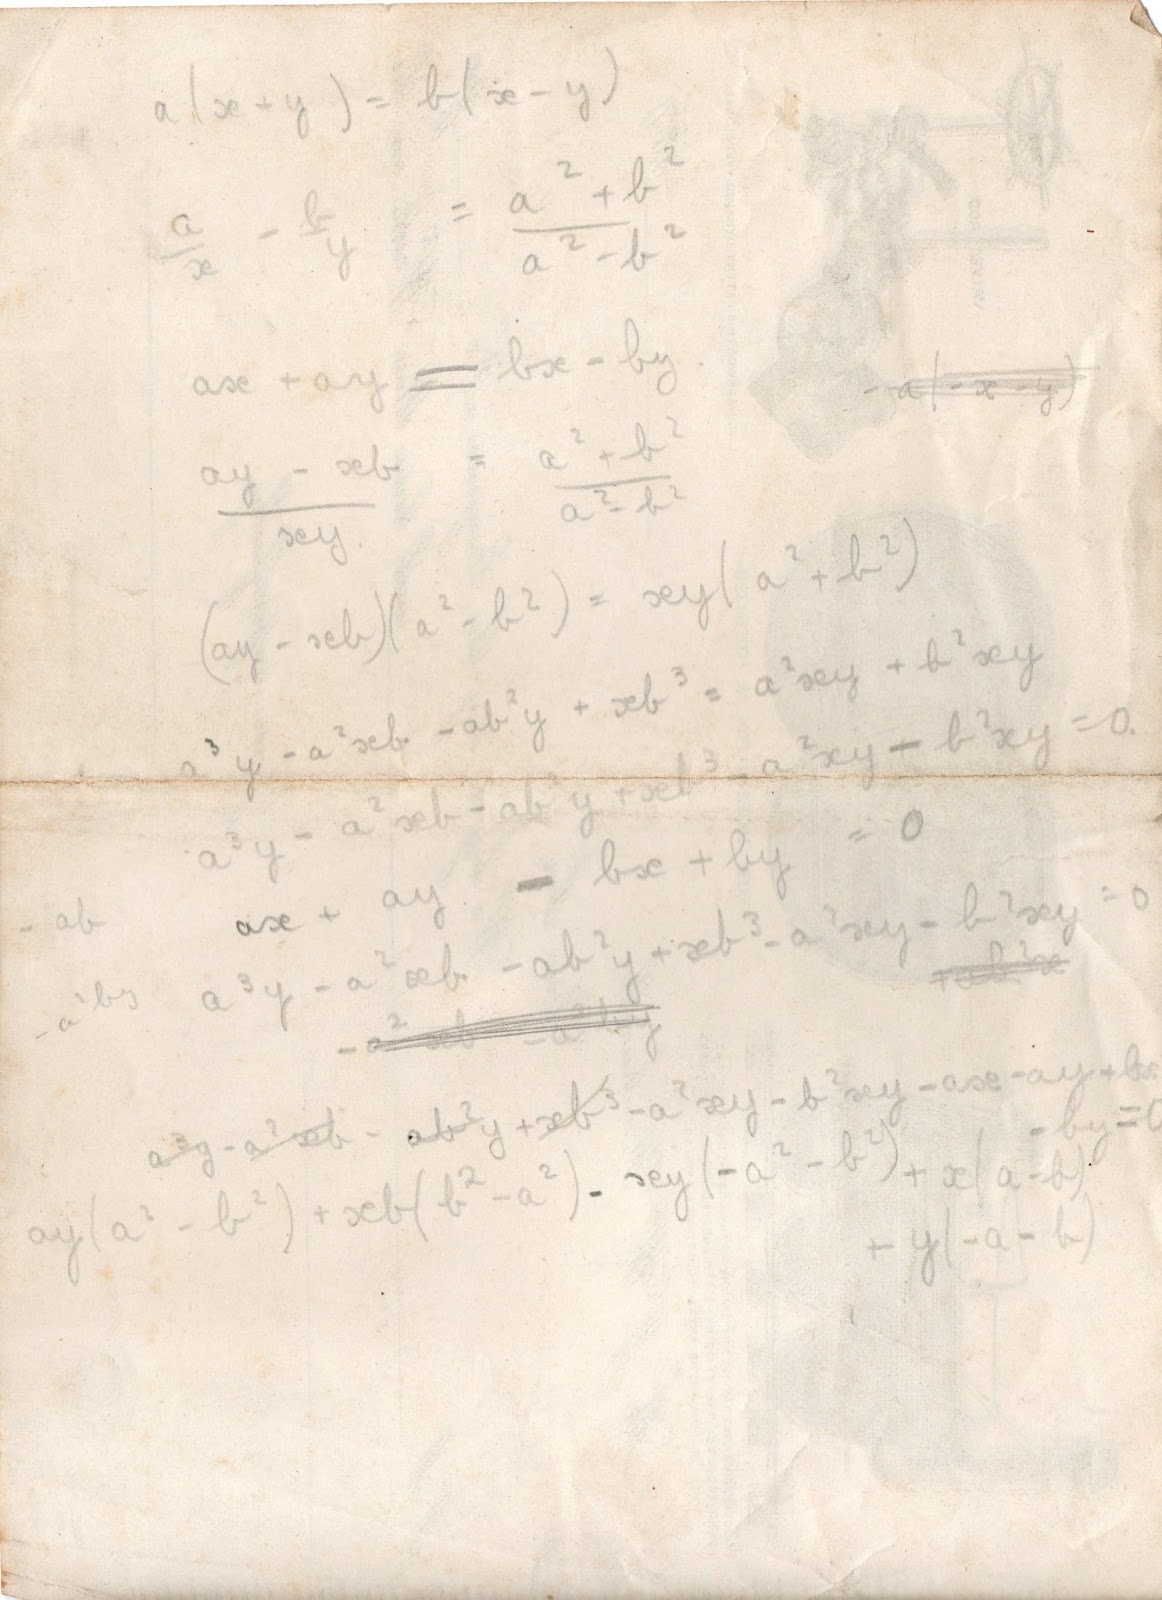 a(x+y) = b(x-y)
a/x - b/y = a²+b²/a²-b²
ax + ay = bx - by.
-a(-x-y)
ay - xb/xy. = a²+b²/a²-b²
(ay - xb)(a²-b²) = xy(a²+b²)
a³y - a²xb - ab²y + xb³ = a²xy + b²xy
a³y - a²xb - ab²y + xb³ - a²xy - b²xy = 0.
ax + ay - bx + by = 0
- ab
a³y - a²xb - ab²y + xb³ - a²xy - b²xy = 0
+ab²x
-a²by
-a²xb -a²by
a³y - a²xb - ab²y + xb³ - a²xy - b²xy - ax - ay + bx
- by = 0
ay(a²-b²) + xb(b²-a²) - xy(-a²-b²) + x(a-b)
+ y(-a-b)